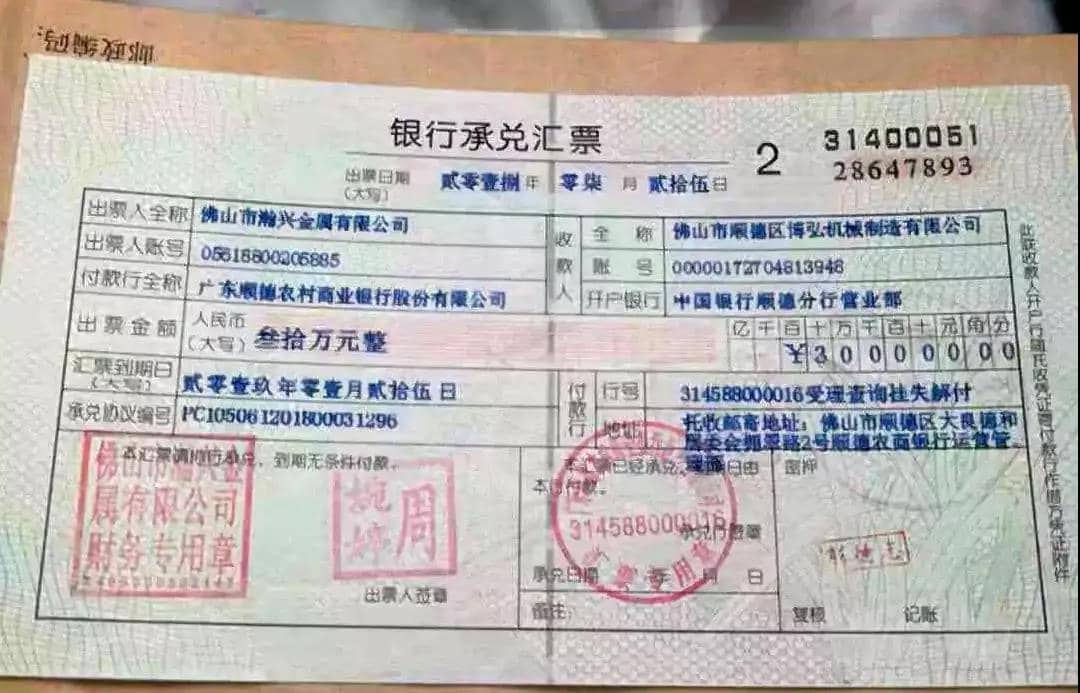 邮政编码:
银行承兑汇票
2
31400051
28647893
出票日期
(大写)
贰零壹捌年 零柒月 贰拾伍日
出票人全称 佛山市瀚兴金属有限公司
出票人账号 05618800205885
付款行全称 广东顺德农村商业银行股份有限公司
收款人
全称 佛山市顺德区博弘机械制造有限公司
账号 00000172704813948
开户银行 中国银行顺德分行营业部
出票金额 人民币
(大写) 叁拾万元整
亿千百十万千百十元角分
¥30000000
汇票到期日
(大写) 贰零壹玖年零壹月贰拾伍日
承兑协议编号 PC105061201800031296
付款行
行号 314588000016受理查询挂失解付
地址 托收邮寄地址:佛山市顺德区大良德和
居委会拥翠路2号顺德农商银行运营管
理部
本汇票请你行承兑,到期无条件付款。
属有限公司
财务专用章
周
婉婷
出票人签章
本汇票已经承兑,到期日由
本行付款。
314588000016
承兑行签章
承兑日期 年 月 日
备注:
密押
复核 记账
此联收款人开户行随托收凭证寄付款行作借方凭证附件